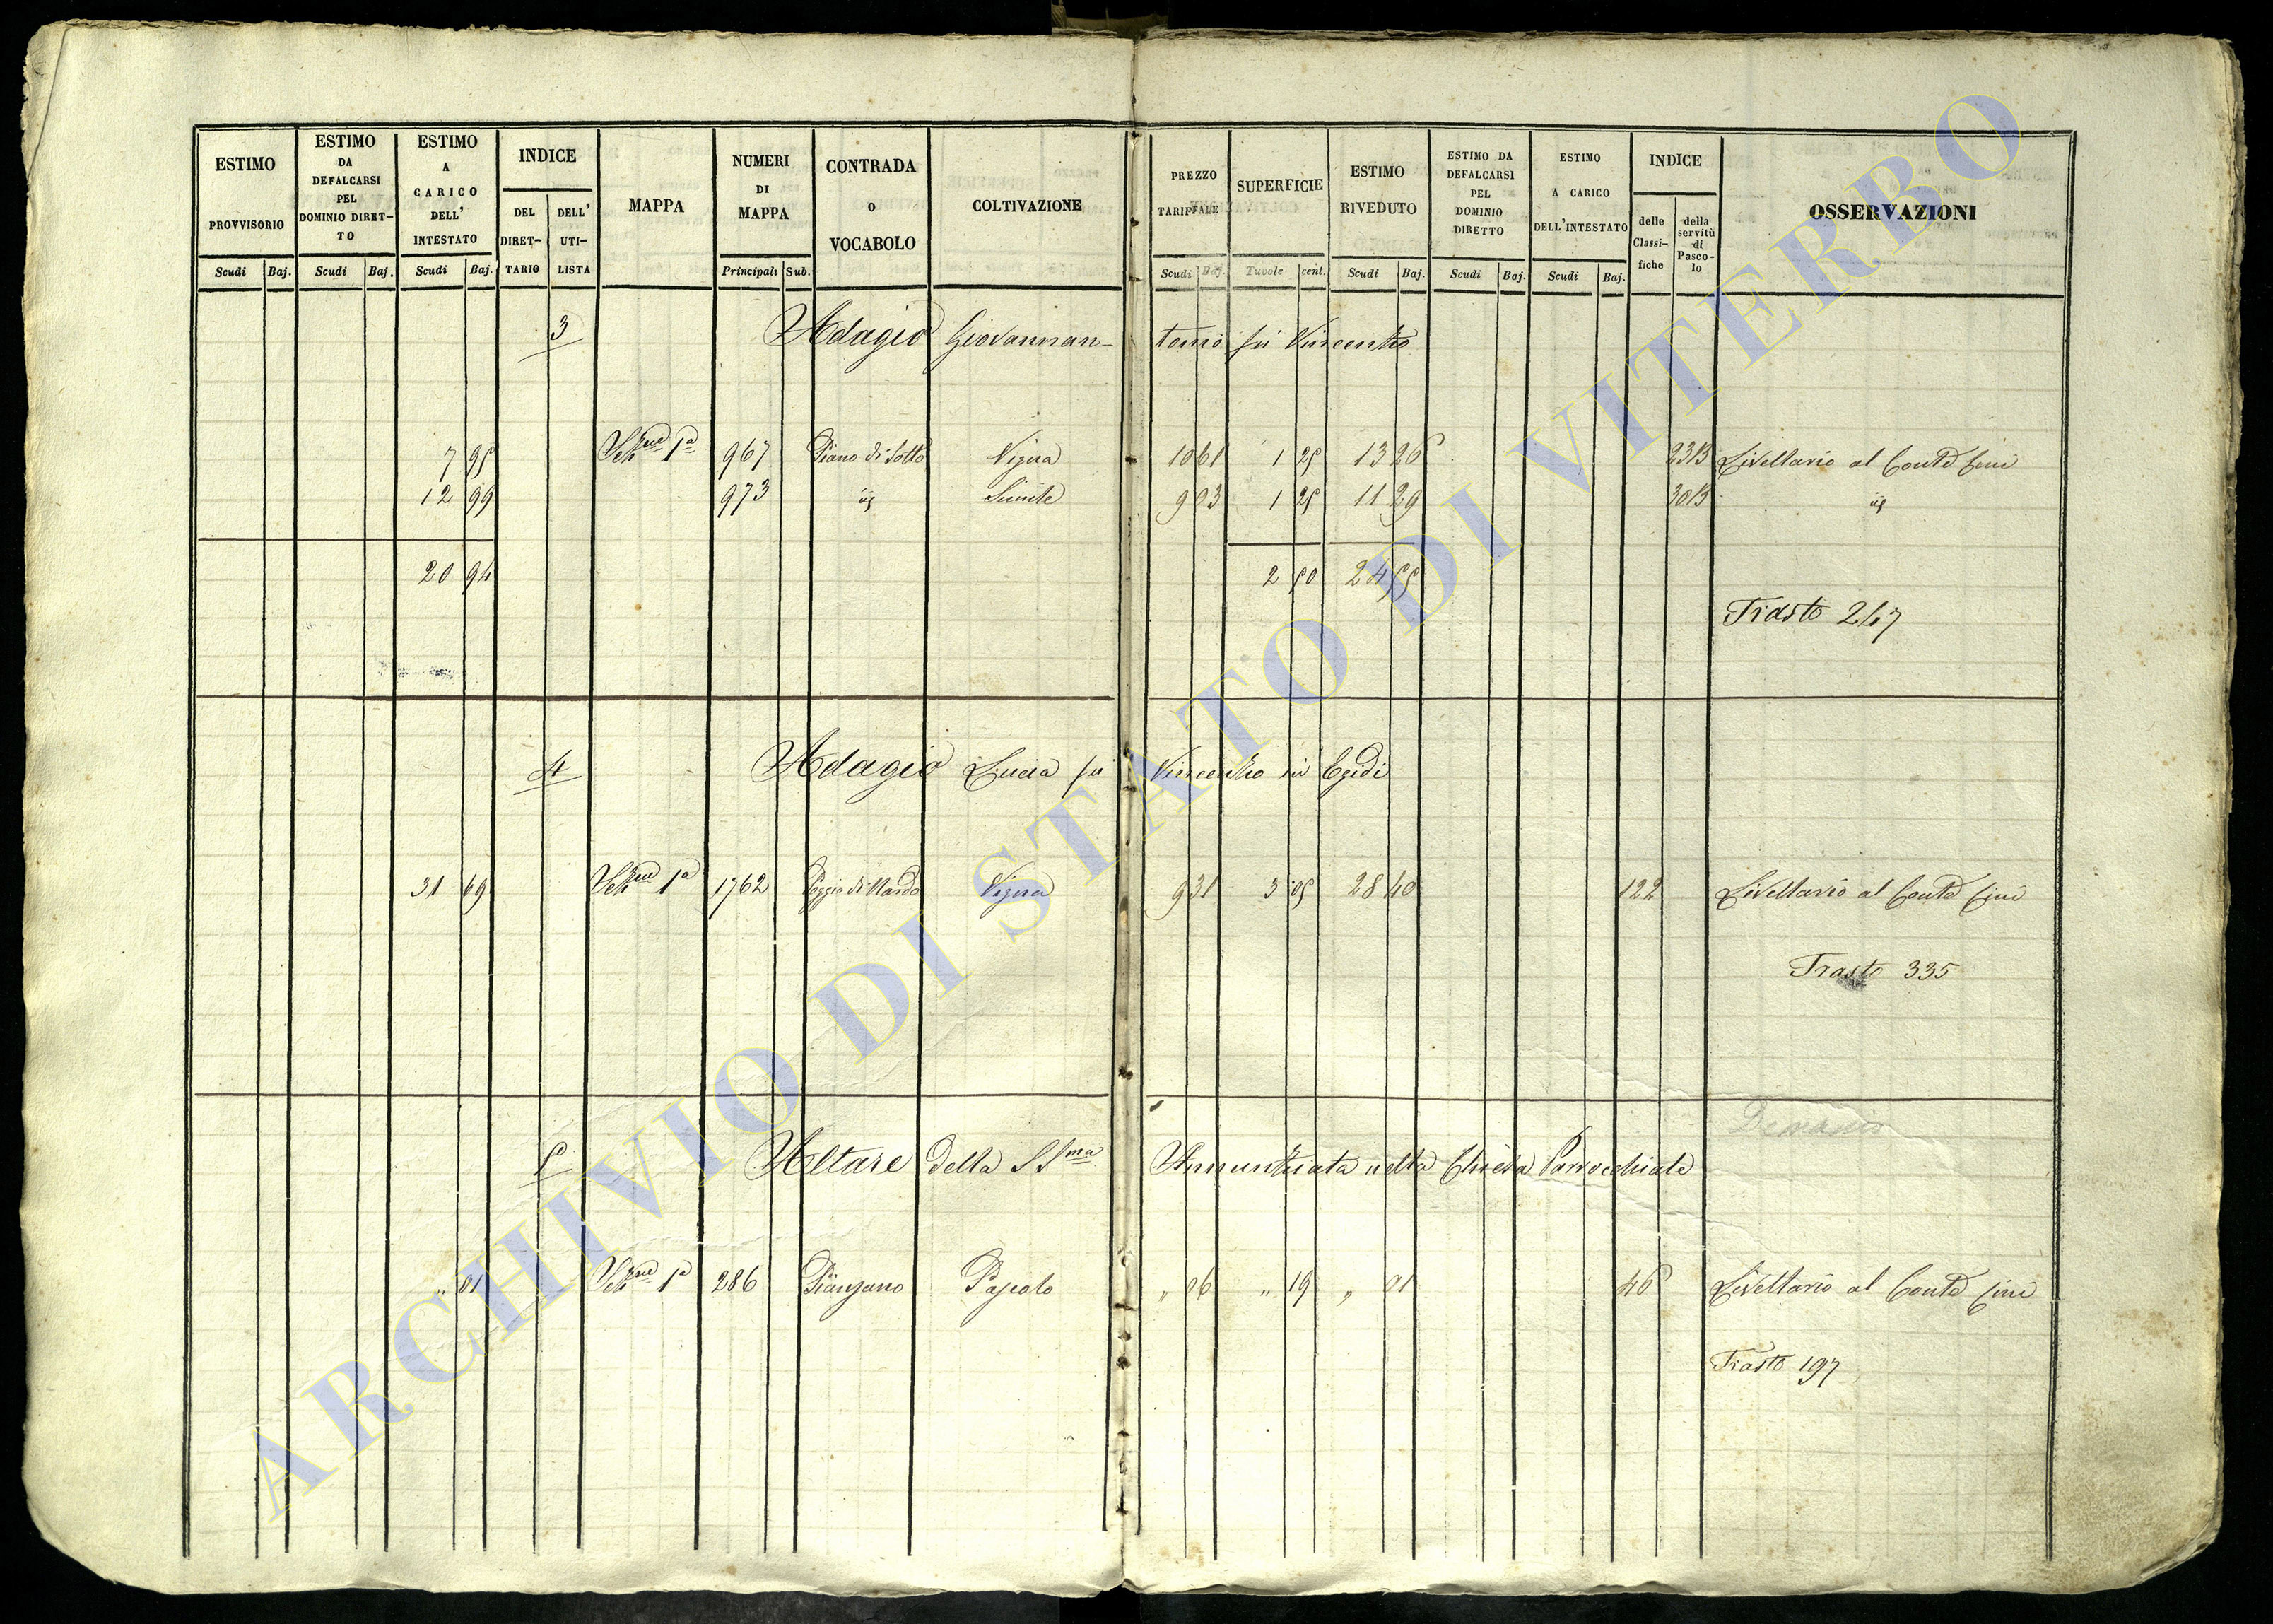 ESTIMO PROVVISORIO
ESTIMO DA DEFALCARSI PEL DOMINIO DIRET-TO
ESTIMO A CARICO DELL' INTESTATO
INDICE
DEL DIRET-TARIO
DELL' UTI-LISTA
MAPPA
NUMERI DI MAPPA
CONTRADA o VOCABOLO
COLTIVAZIONE
PREZZO TARIFFALE
SUPERFICIE
ESTIMO RIVEDUTO
ESTIMO DA DEFALCARSI PEL DOMINIO DIRETTO
ESTIMO A CARICO DELL'INTESTATO
INDICE
delle Classi-fiche
della servitù di Pasco-lo
OSSERVAZIONI
Scudi Baj. Scudi Baj. Scudi Baj. Principali Sub. Scudi Baj. Tavole cent. Scudi Baj. Scudi Baj. Scudi Baj.
3 Adagio Giovannan- tonio fu Vincenzo
7 95 Sez.ne 1a 967 Piano di Sotto Vigna 10 61 1 25 13 26 Livellario al Conte Cini
12 99 973 Simile 9 03 1 25 11 29
20 94 2 50 24 55
Trasto 247
4 Adagio Lucia fu Vincenzo in Egidi
31 69 Sez.ne 1a 1762 Poggio di Nardo Vigna 9 31 3 05 28 40 122 Livellario al Conte Cini
Trasto 335
Demanio
5 Altare della SSma Annunziata nella Chiesa Parrocchiale
" 01 Sez.ne 1a 286 Pianzano Pascolo " 06 " 19 " 01 46 Livellario al Conte Cini
Trasto 197
ARCHIVIO DI STATO DI VITERBO